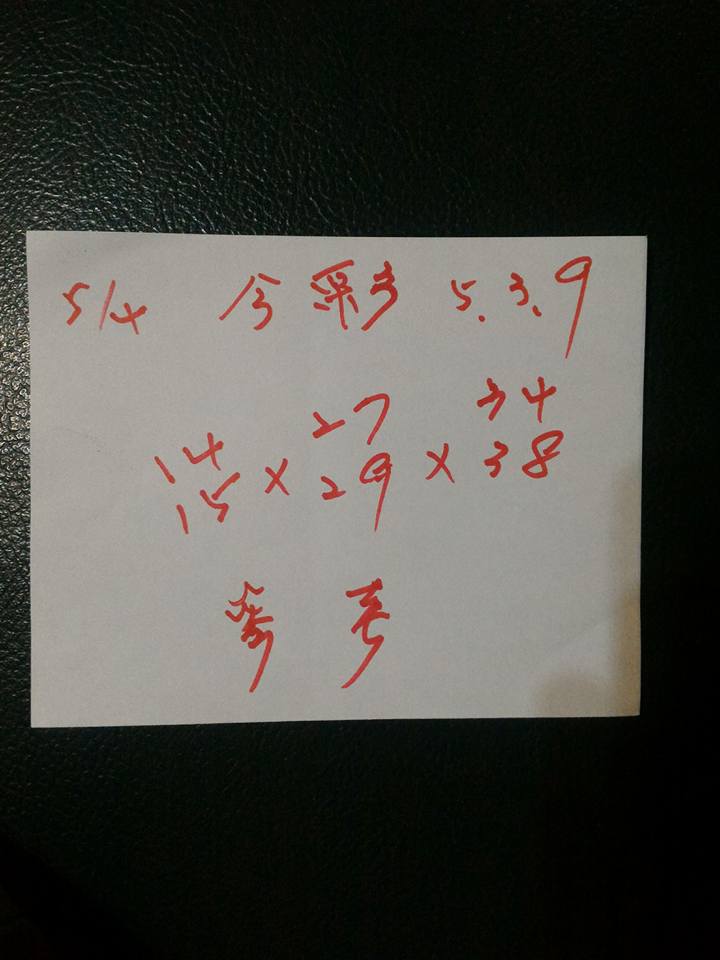 5/4 今彩 5.3.9
27 34
14
15 × 29 × 38
參考